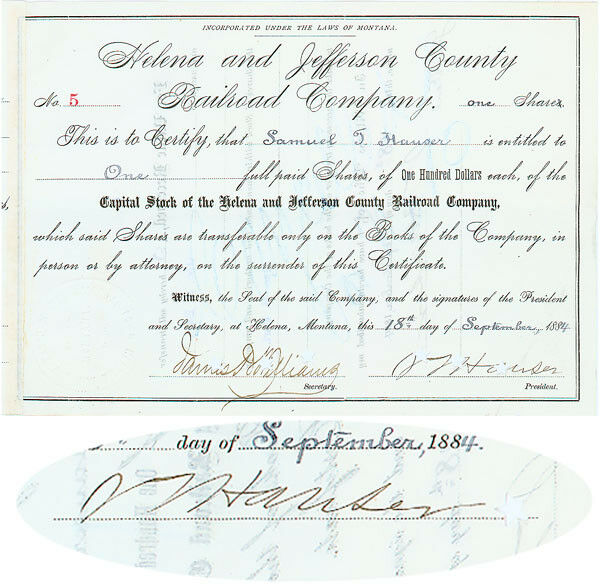 INCORPORATED UNDER THE LAWS OF MONTANA.
Helena and Jefferson County
No. 5 Railroad Company. one Shares
This is to Certify, that Samuel T. Hauser is entitled to
One full paid Shares, of One Hundred Dollars each, of the
Capital Stock of the Helena and Jefferson County Railroad Company,
which said Shares are transferable only on the Books of the Company, in
person or by attorney, on the surrender of this Certificate.
Witness, the Seal of the said Company, and the signatures of the President
and Secretary, at Helena, Montana, this 18th day of September, 1884
S T Hauser
Secretary. President.
day of September, 1884.
S T Hauser